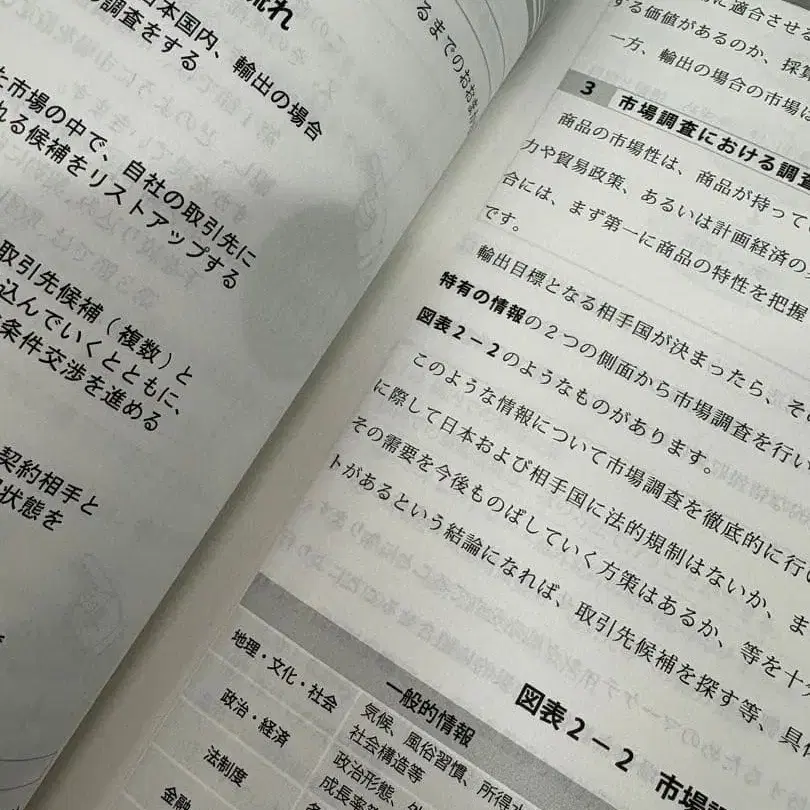 流れ
日本国内、輸出の場合
調査をする
るまでのおお
た市場の中で、自社の取引先に
れる候補をリストアップする
取引先候補（複数）と
込んでいくとともに、
条件交渉を進める
契約相手と
状態を
に適合させる
する価値があるのか、採算
一方、輸出の場合の市場は
3 市場調査における調査
商品の市場性は、商品が持ってい
力や貿易政策、あるいは計画経済の
合には、まず第一に商品の特性を把握
です。
輸出目標となる相手国が決まったら、そ
特有の情報の２つの側面から市場調査を行い
図表２－２のようなものがあります。
このような情報について市場調査を徹底的に行い
に際して日本および相手国に法的規制はないか、ま
その需要を今後ものばしていく方策はあるか、等を十
トがあるという結論になれば、取引先候補を探す等、具体
図表２－２ 市場
一般的情報
地理・文化・社会
気候、風俗習慣、所得水
社会構造等
政治・経済
政治形態、外
成長率等
法制度
金融